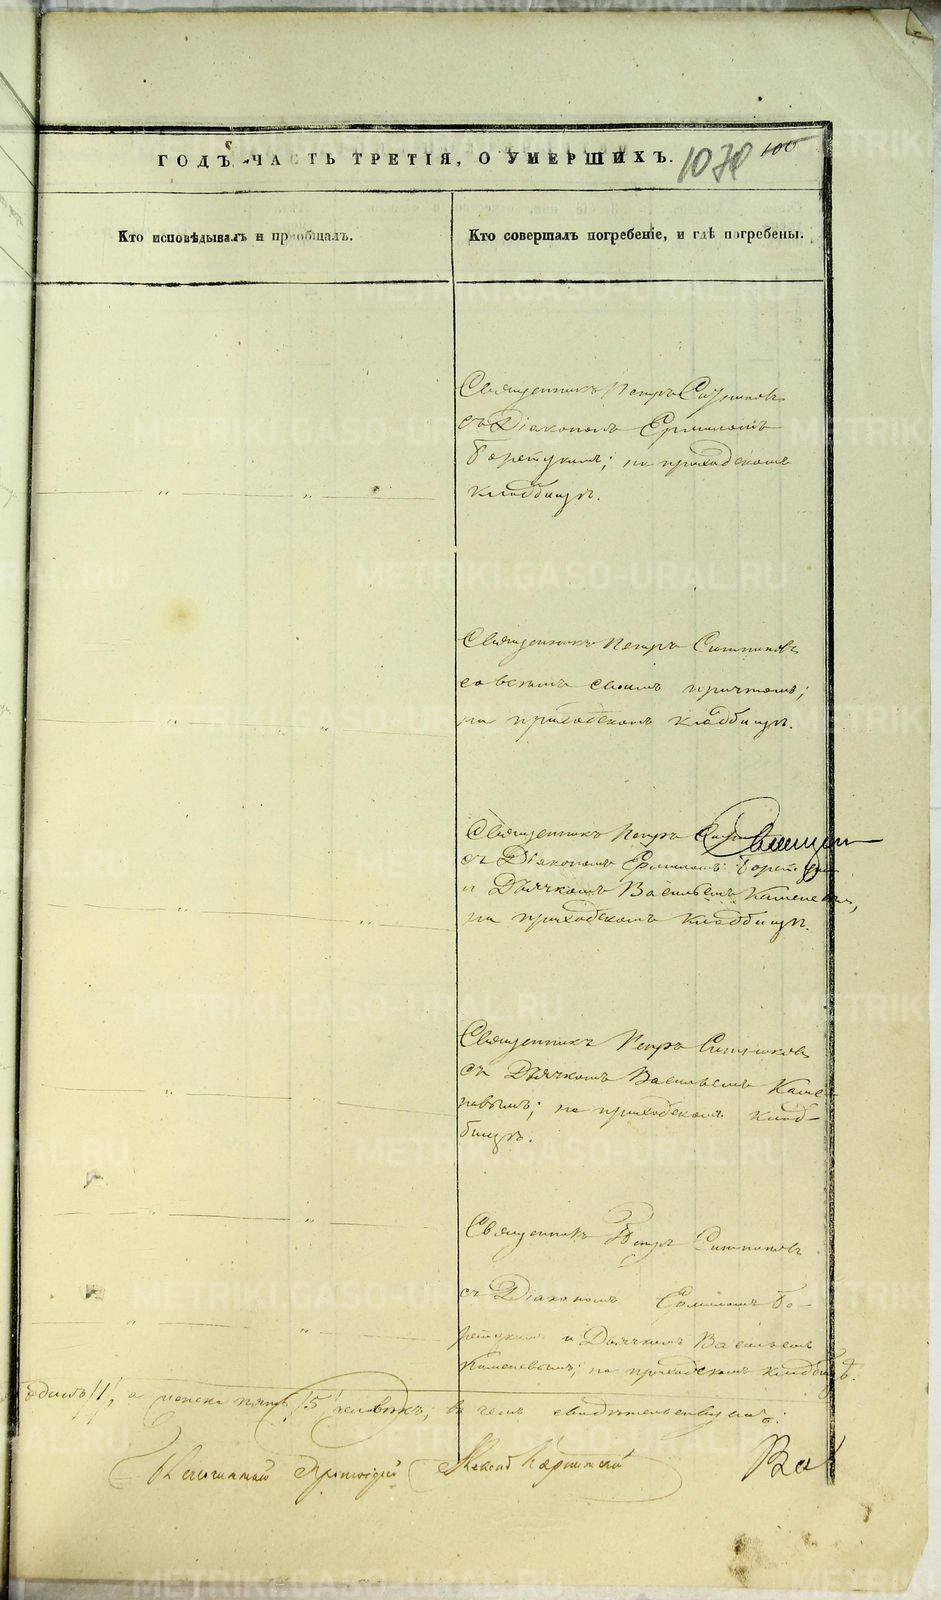 ГОДЪ, ЧАСТЬ ТРЕТІЯ, О УМЕРШИХЪ. 100
Кто исповѣдывалъ и пріобщалъ.
Кто совершалъ погребеніе, и гдѣ погребены.
Священникъ Петръ Ситниковъ
съ Діакономъ Ермиломъ
Борецкимъ; на приходскомъ
кладбищѣ.
Священникъ Петръ Ситниковъ
со всѣмъ своимъ причтомъ;
на приходскомъ кладбищѣ.
Священникъ Петръ
съ Діакономъ Ермиломъ
и Дьячкомъ Васильемъ Каменевымъ,
на приходскомъ кладбищѣ.
Священникъ Петръ Ситниковъ
съ Дьячкомъ Васильемъ Каме-
невымъ; на приходскомъ клад-
бищѣ.
Священникъ Петръ Ситниковъ
съ Діакономъ Ермиломъ Бо-
рецкимъ и Дьячкомъ Васильемъ
Каменевымъ; на приходскомъ кладбищѣ.
одинъ /1/, а женска пять /5/ человѣкъ, въ чемъ свидѣтельствуемъ:
METRIKI.GASO-URAL.RU